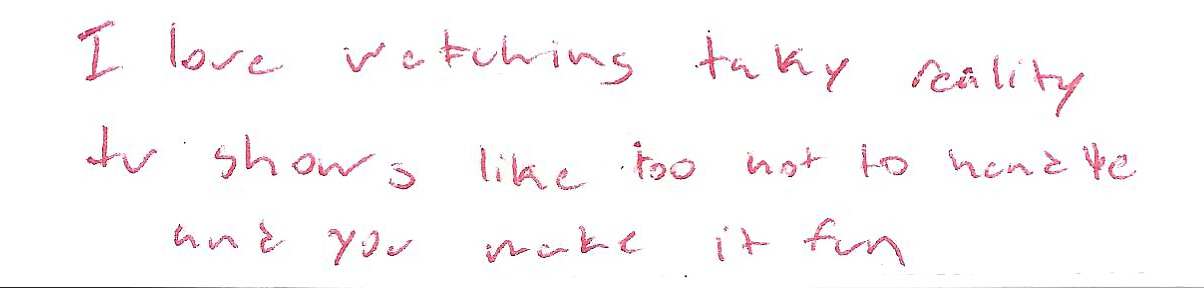 I love watching taky reality
tv shows like too hot to handle
and you make it fun